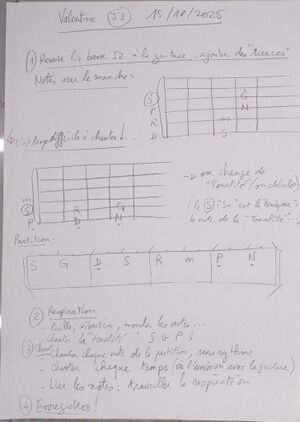 Valentine J3 15/10/2025
① Revoir la base J2 à la guitare : ajouter des "tierces"
Notes sur le manche -
S G
P N
R m
D S
c'est trop difficile à chanter !..
m
S R G
P D N
→ on change de "tonalité" / on décale
(le S "Sa" est la tonique : la note de la "tonalité" ...)
Partition :
S G | D S | R m | P N
② Respiration
- Paille, vibration, monter les notes...
chanter la "tonalité" S G P S
③ Chant
- chanter chaque note de la partition, sans rythme
- chanter chaque temps (à l'unisson avec la guitare)
- Lier les notes : travailler la respiration
④ Enregistrer !